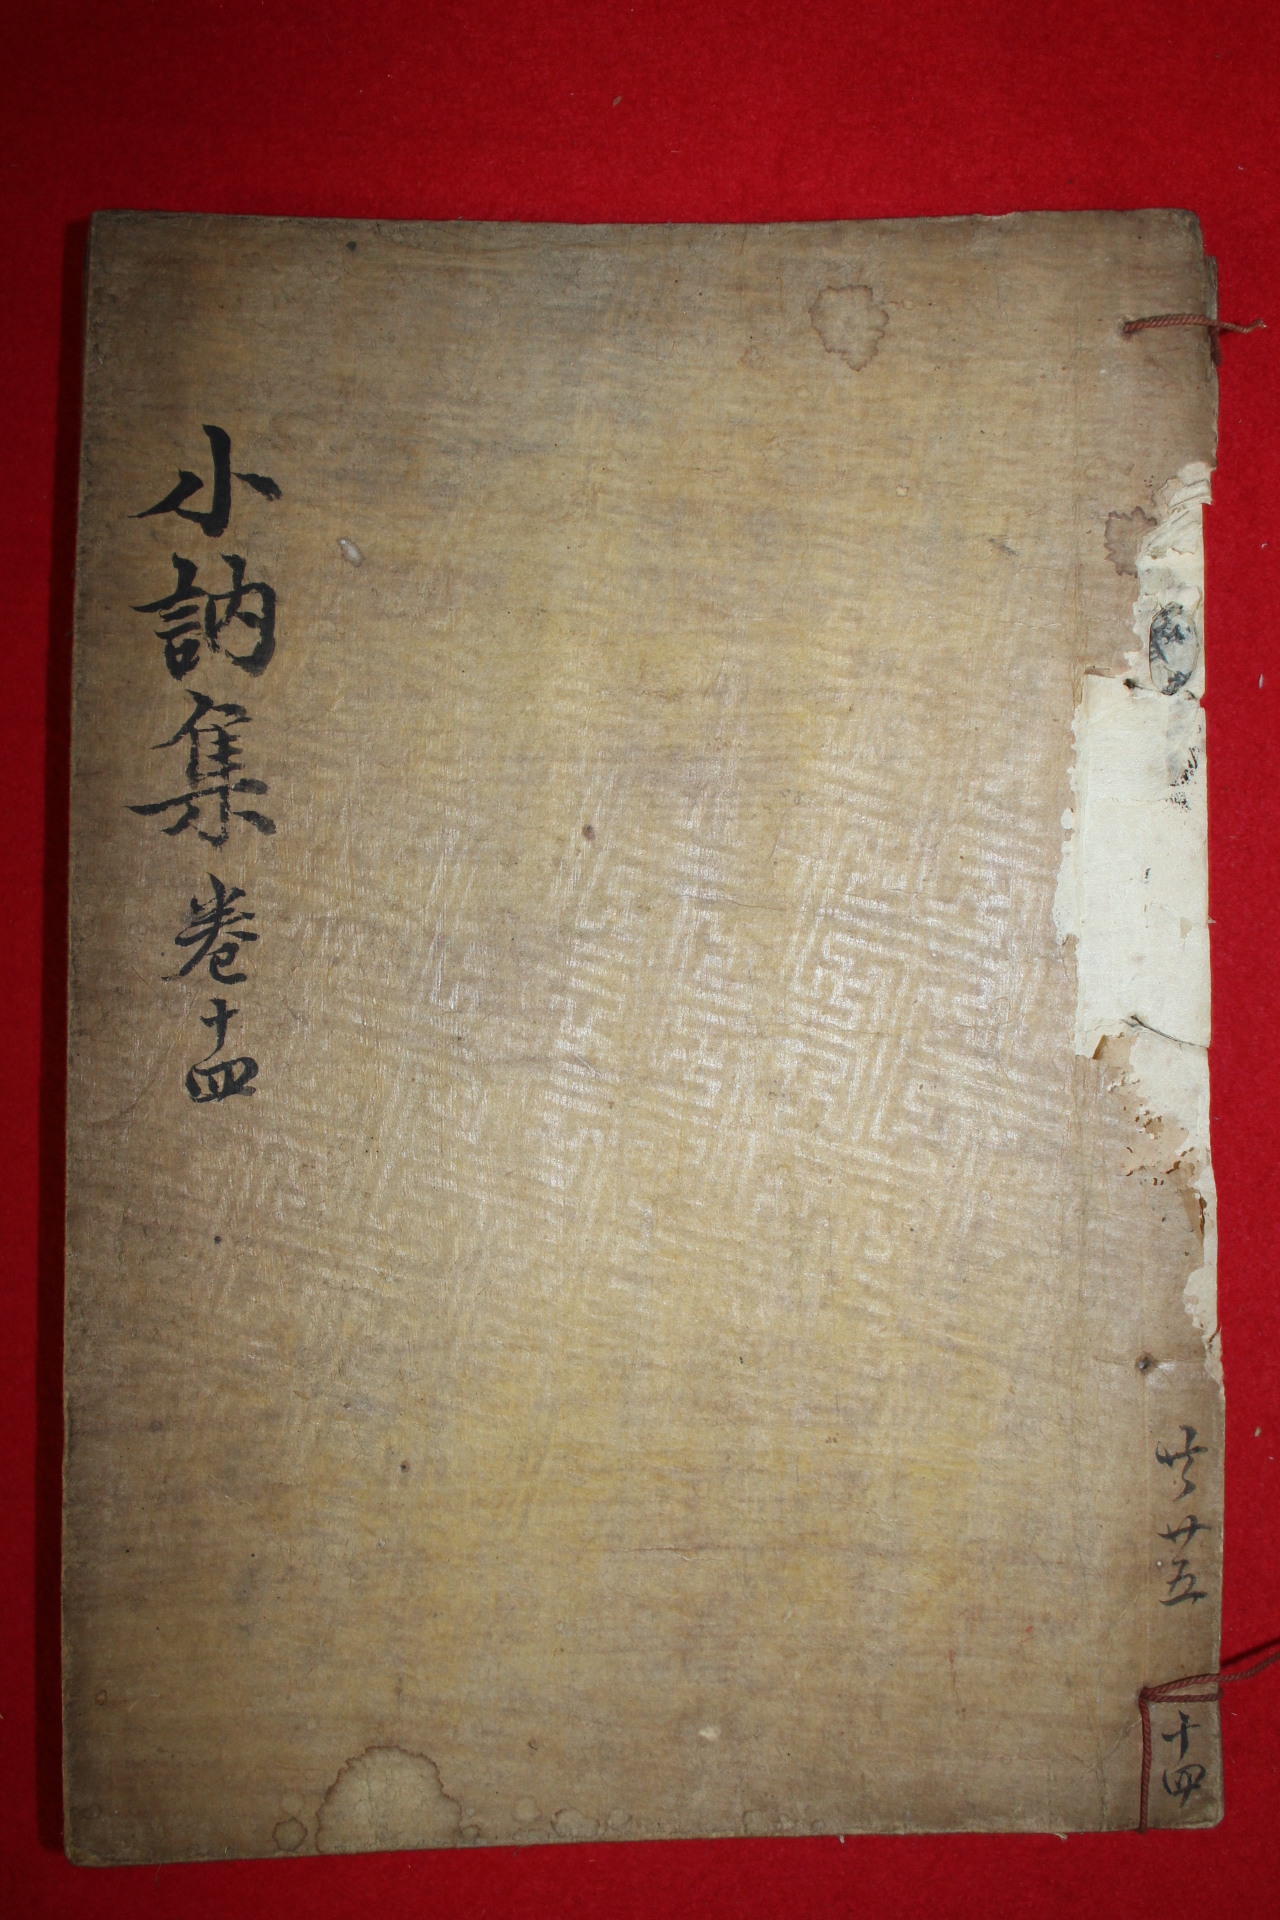 共廿五
十四
小訥集 卷十四